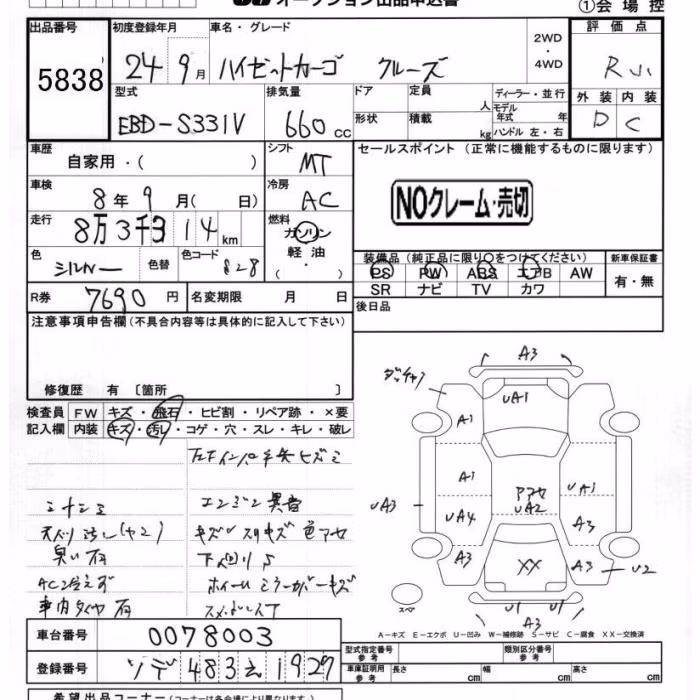 オークション出品申込書
①会場控
出品番号 初度登録年月 車名・グレード 2WD ・ 4WD 評価点
5838 24 9月 ハイゼットカーゴ クルーズ R
型式 排気量 ドア 定員 人 ディーラー・並行 外装 内装
EBD-S331V 660cc 形状 積載 kg モデル年式 年 ハンドル 左・右 D C
車歴 自家用・( ) シフト MT セールスポイント (正常に機能するものに限ります)
車検 8年9月( 日) 冷房 AC NOクレーム・売切
走行 8万3千314km 燃料 ガソリン 軽油 ・( )
色 シルバー 色替 色コード S28 装備品 (純正品に限り○をつけてください) 新車保証書
PS PW ABS エアB AW 有・無
SR ナビ TV カワ
R券 7690円 名変期限 月 日 後日品
注意事項申告欄(不具合内容等は具体的に記入して下さい)
修復歴 有 〔箇所 〕
検査員 FW キズ・飛石・ヒビ割・リペア跡・×要
記入欄 内装 キズ・汚レ・コゲ・穴・スレ・キレ・破レ
エンジン異音
天バリ汚レ(ヤニ) キズ スリキズ 色アセ
臭い有 下回りS
AC冷えず ホイールミラーカバーキズ
車内タイヤ有
A3
UA1
A1
A1 UA1
アアセ
UA3 UA4 UA2 A3
A3 XX A3 U2
スペ U1 U1
A3
A-キズ E-エクボ U-凹み W-補修跡 S-サビ C-腐食 XX-交換済
車台番号 0078003 型式指定番号 参考 類別区分番号 参考
登録番号 ソデ483え1927 車庫証明用 参考 長さ cm 幅 cm 高さ cm
希望出品コーナー